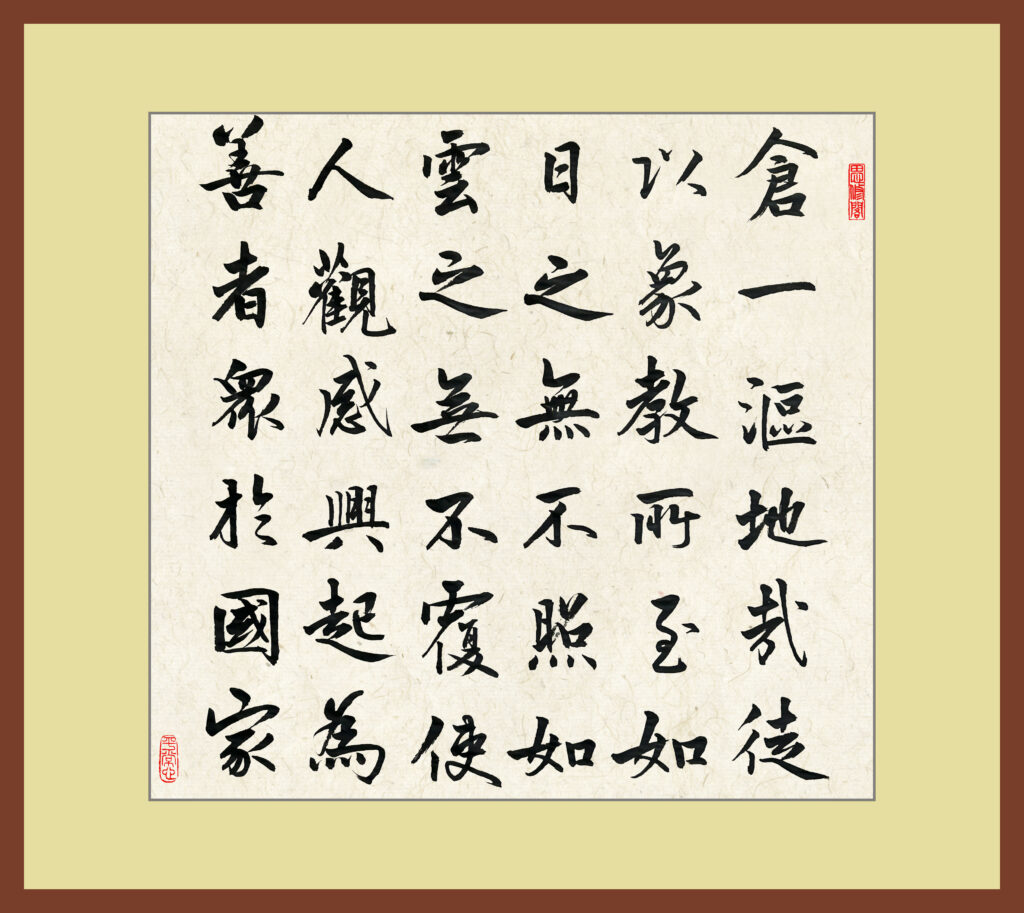 思修閣
倉一漚地哉徒
以象教所至如
日之無不照如
雲之無不覆使
人觀感興起為
善者眾於國家